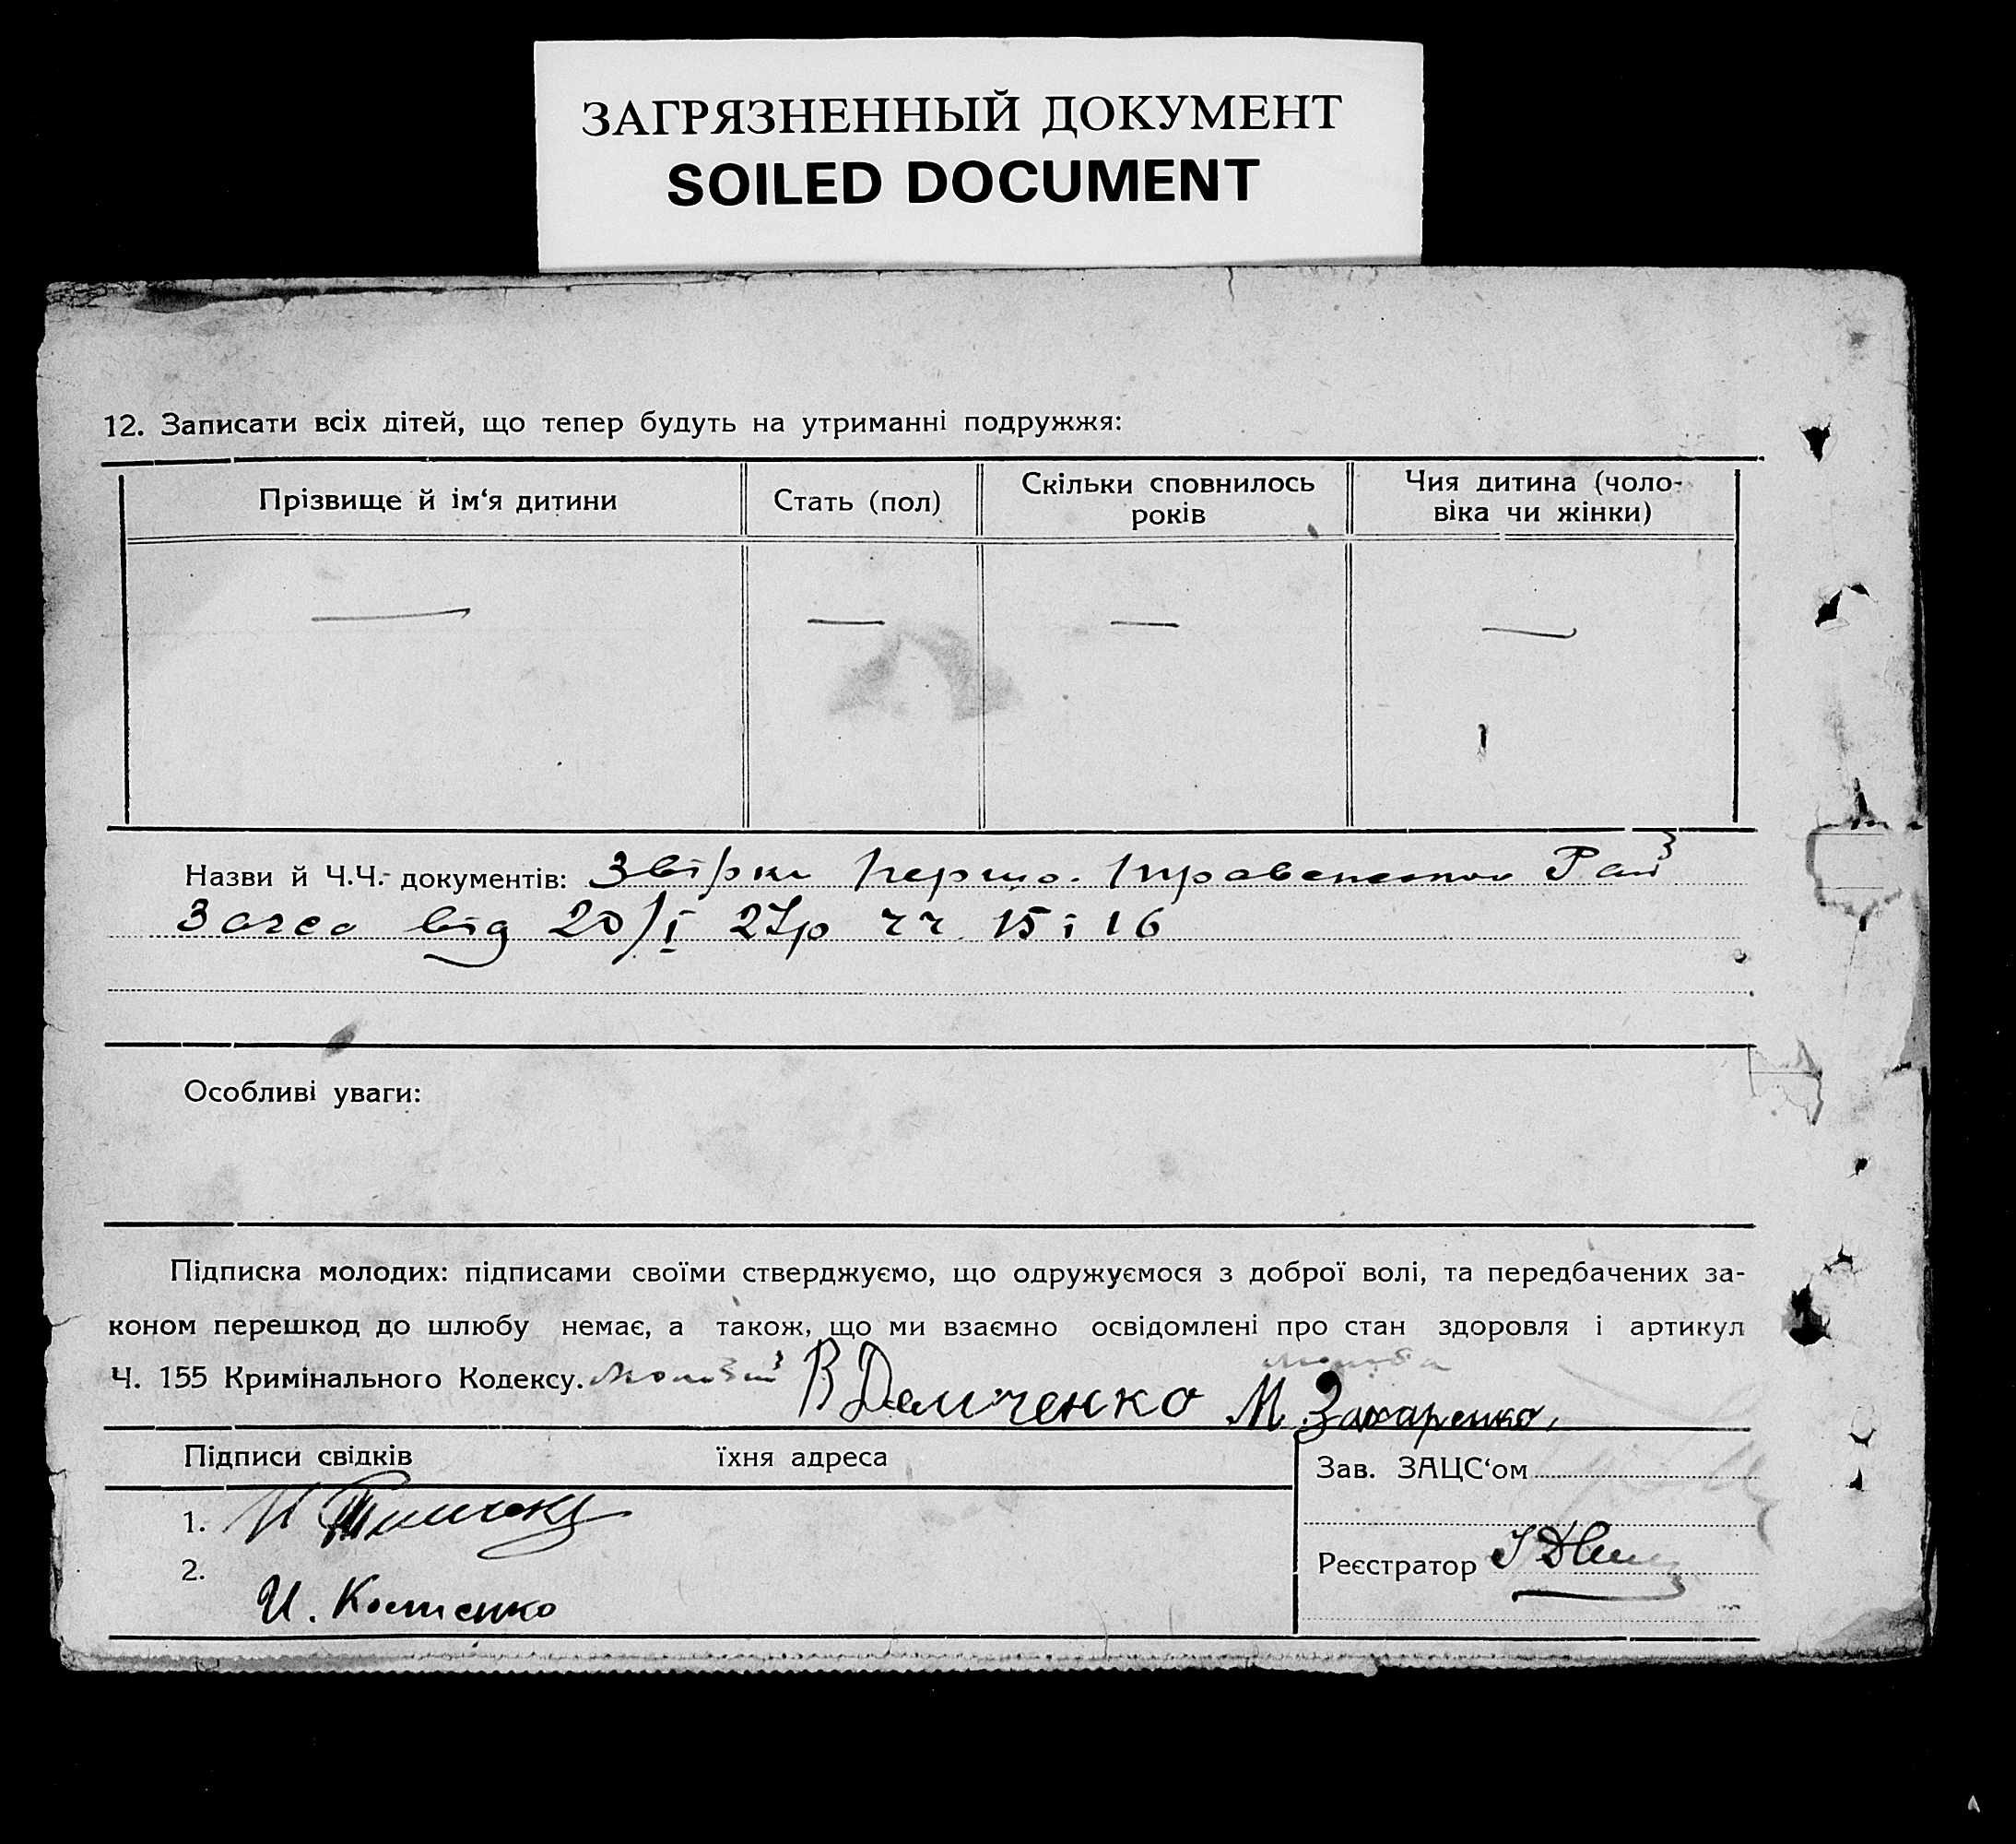 ЗАГРЯЗНЕННЫЙ ДОКУМЕНТ
SOILED DOCUMENT
12. Записати всіх дітей, що тепер будуть на утриманні подружжя:
Прізвище й ім‘я дитини
Стать (пол)
Скільки сповнилось
років
Чия дитина (чоло-
віка чи жінки)
— — — —
Назви й Ч.Ч.- документів: Звірки Першо. Травенської Рай
Загса від 20/I 27р чч 15 і 16
Особливі уваги:
Підписка молодих: підписами своїми стверджуємо, що одружуємося з доброї волі, та передбачених за-
коном перешкод до шлюбу немає, а також, що ми взаємно освідомлені про стан здоровля і артикул
Ч. 155 Кримінального Кодексу. молодий В Демченко М. Захаренко.
Підписи свідків їхня адреса
Зав. ЗАЦС‘ом
1.
2.
И. Костенко
Реєстратор